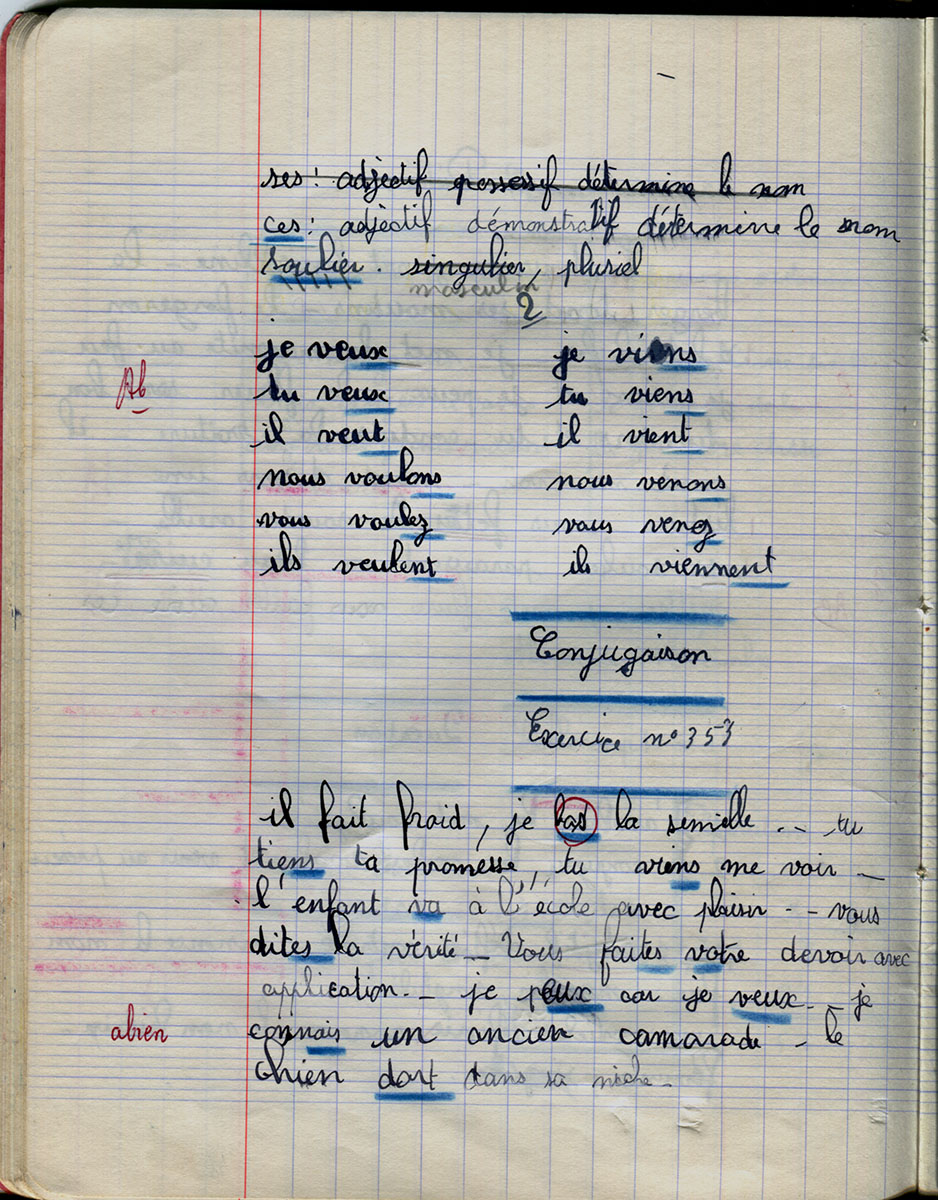 ses : adjectif possessif détermine le nom
ces : adjectif démonstratif détermine le nom
soulier. singulier, pluriel
masculin
2
je veux je viens
Ab
tu veux tu viens
il veut il vient
nous voulons nous venons
vous voulez vous venez
ils veulent ils viennent
Conjugaison
Exercice n° 353
il fait froid, je bat la semelle -- tu
tiens ta promesse, tu viens me voir -
l'enfant va à l'école avec plaisir -- vous
dites la vérité - Vous faites votre devoir avec
application. - je peux car je veux - je
abien
connais un ancien camarade - le
chien dort dans sa niche -